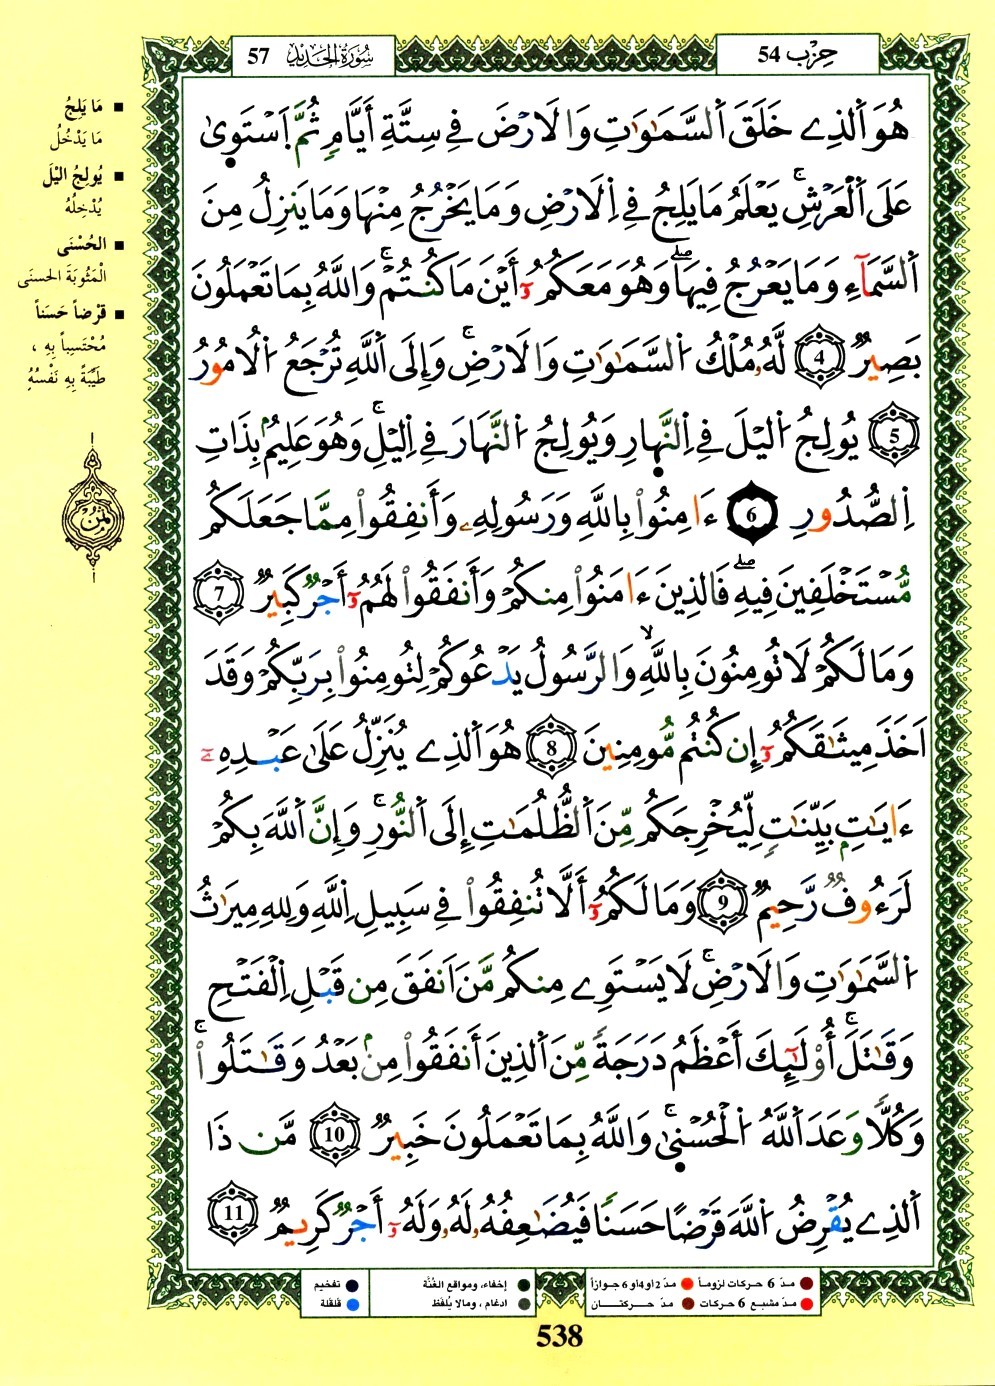 حِزْب 54
سُورَةُ الحَدِيدِ 57
هُوَ اَ۬لذِے خَلَقَ اَ۬لسَّمَٰوَٰتِ وَالَارْضَ فِے سِتَّةِ أَيَّامٖ ثُمَّ اَ۪سْتَو۪يٰ
عَلَى اَ۬لْعَرْشِۖ يَعْلَمُ مَا يَلِجُ فِے اِ۬لَارْضِ وَمَا يَخْرُجُ مِنْهَا وَمَا يَنزِلُ مِنَ
اَ۬لسَّمَآءِ وَمَا يَعْرُجُ فِيهَاۖ وَهُوَ مَعَكُمُۥٓ أَيْنَ مَا كُنتُمْۖ وَاللَّهُ بِمَا تَعْمَلُونَ
بَصِيرٞ 4 لَّهُۥ مُلْكُ اُ۬لسَّمَٰوَٰتِ وَالَارْضِۖ وَإِلَى اَ۬للَّهِ تُرْجَعُ اُ۬لُامُورُ
5 يُولِجُ اُ۬ليْلَ فِے اِ۬لنَّه۪ارِ وَيُولِجُ اُ۬لنَّهَارَ فِے اِ۬ليْلِۖ وَهُوَ عَلِيمُۢ بِذَاتِ
اِ۬لصُّدُورِ 6 ءَامِنُواْ بِاللَّهِ وَرَسُولِهِۦ وَأَنفِقُواْ مِمَّا جَعَلَكُم
مُّسْتَخْلَفِينَ فِيهِۖ فَالذِينَ ءَامَنُواْ مِنكُمْ وَأَنفَقُواْ لَهُمُۥٓ أَجْرٞ كَبِيرٞ 7
وَمَا لَكُمْ لَا تُومِنُونَ بِاللَّهِ وَالرَّسُولُ يَدْعُوكُمْ لِتُومِنُواْ بِرَبِّكُمْ وَقَدَ
اَخَذَ مِيثَٰقَكُمُۥٓ إِن كُنتُم مُّومِنِينَ 8 هُوَ اَ۬لذِے يُنَزِّلُ عَلَىٰ عَبْدِهِۦٓ
ءَايَٰتِۢ بَيِّنَٰتٖ لِّيُخْرِجَكُم مِّنَ اَ۬لظُّلُمَٰتِ إِلَى اَ۬لنُّورِۖ وَإِنَّ اَ۬للَّهَ بِكُمْ
لَرَءُوفٞ رَّحِيمٞ 9 وَمَا لَكُمُۥٓ أَلَّا تُنفِقُواْ فِے سَبِيلِ اِ۬للَّهِ وَلِلهِ مِيرَٰثُ
اُ۬لسَّمَٰوَٰتِ وَالَارْضِۖ لَا يَسْتَوِے مِنكُم مَّنَ اَنفَقَ مِن قَبْلِ اِ۬لْفَتْحِ
وَقَٰتَلَۖ أُوْلَٰٓئِكَ أَعْظَمُ دَرَجَةٗ مِّنَ اَ۬لذِينَ أَنفَقُواْ مِنۢ بَعْدُ وَقَٰتَلُواْۖ
وَكُلّٗا وَعَدَ اَ۬للَّهُ اُ۬لْحُسْن۪يٰۖ وَاللَّهُ بِمَا تَعْمَلُونَ خَبِيرٞ 10 مَّن ذَا
اَ۬لذِے يُقْرِضُ اُ۬للَّهَ قَرْضًا حَسَنٗا فَيُضَٰعِفُهُۥ لَهُۥ وَلَهُۥٓ أَجْرٞ كَرِيمٞ 11
■ مَا يَلِجُ
مَا يَدْخُلُ
■ يُولِجُ اليْلَ
يُدْخِلُهُ
■ الحُسْنَى
الْمَثُوبَةَ الحسنَى
■ قَرْضاً حَسَناً
مُحْتَسِباً بِهِ ،
طَيِّبَةً بِهِ نَفْسُهُ
ثُمُن
● مدّ 6 حركات لزوماً ● مدّ 2 أو 4 أو 6 جوازاً
● مدّ مشبع 6 حركات ● مدّ حركتان
● إخفاء، ومواقع الغُنَّة
● ادغام ، ومالا يُلفَظ
● تفخيم
● قلقلة
538